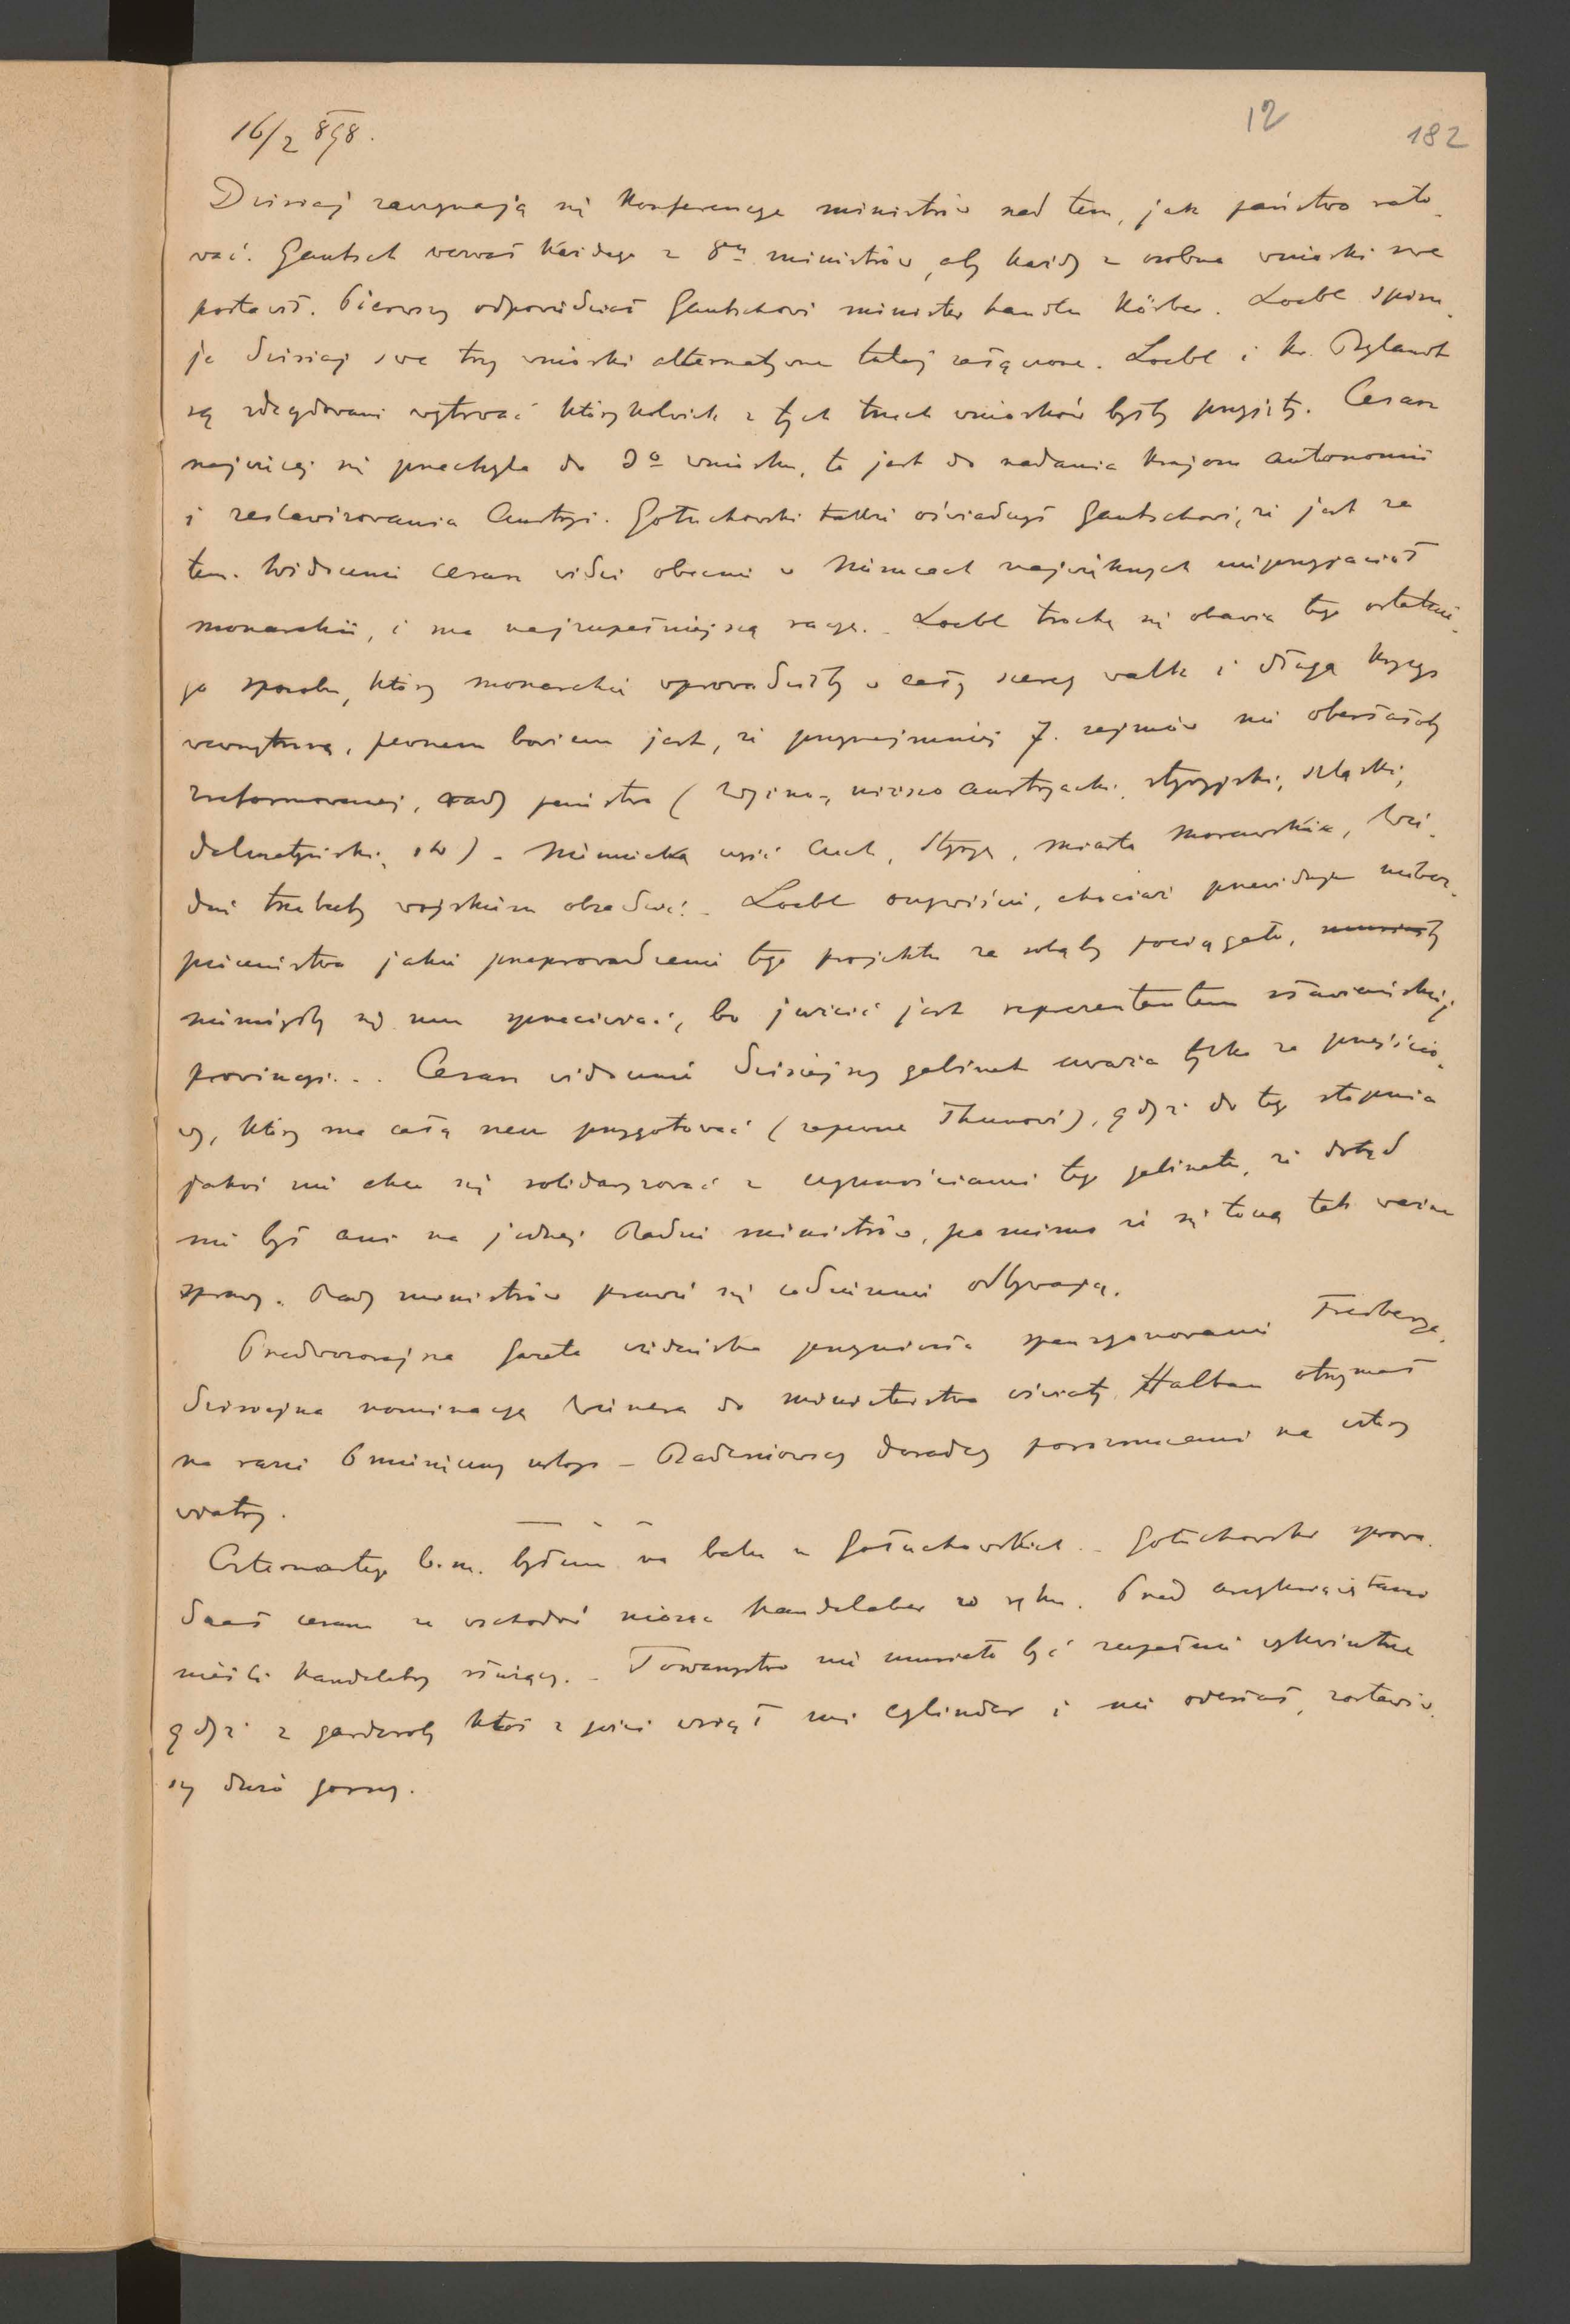 12
182
16/2 898.
Dzisiaj zaczynają się konferencye ministrów nad tem, jak państwo rato-
wać. Gautsch wezwał każdego z 8miu ministrów, aby każdy z osobna wnioski swe
postawił. Pierwszy odpowiedział Gautschowi minister handlu Körber. Loebl spisu-
je dzisiaj swe trzy wnioski alternatywne tutaj załączone. Loebl i hr. Bylandt
są zdecydowani wytrwać którykolwiek z tych trzech wniosków byłby przyjęty. Cesarz
najwięcej się przechyla do 3º wniosku, to jest do nadania krajom autonomii
i zeslawizowania Austryi. Gołuchowski także oświadczył Gautschowi, że jest za
tem. Widocznie cesarz widzi obecnie w Niemcach największych nieprzyjaciół
monarchii, i ma najzupełniejszą racyę. - Loebl trochę się obawia tego ostatnie-
go sposobu, który monarchię wprowadziłby w cały szereg walk i długą kryzys
wewnętrzną, pewnem bowiem jest, że przynajmniej 7. sejmów nie obesłałoby
zreformowanej, rady państwa ( niższo austryacki, styryjski, szląski,
dalmatyński, ) - Niemiecką część Czech, Styryę, miasta Morawskie, Wie-
deń trzebaby wojskiem obsadzić! - Loebl oczywiście, chociaż przewiduje niebez-
pieczeństwa jakie przeprowadzenie tego projektu za sobąby pociągało,
nie mógłby się mu sprzeciwiać, bo przecież jest reprezentantem słowiańskiej
prowincyi... Cesarz widocznie dzisiejszy gabinet uważa tylko za przejścio-
wy, który ma całą rzecz przygotować (zapewne Thunowi), gdyż do tego stopnia
jakoś nie chce się solidaryzować z czynnościami tego gabinetu, że dotąd
nie był ani na jednej Radzie ministrów, pomimo że się toczą tak ważne
sprawy. Rady ministrów prawie się codziennie odbywają.
Przedwczorajsza Gazeta wiedeńska przyniosła spensyonowanie Freiberga,
dzisiejsza nominacyę do ministerstwa oświaty. Halban otrzymał
na razie 6 miesięczny urlop - Badeniowscy doradcy porozrzucani na cztery
wiatry.
Czternastego b.m. byłem na balu u Gołuchowskich. - Gołuchowski sprowa-
dzał cesarza ze wschodów niosąc kandelaber w ręku. Przed arcyksiążętami
nieśli kandelabry służący. - Towarzystwo nie musiało być zupełnie wykwintne
gdyż z garderoby ktoś z gości wziął mi cylinder i nie odesłał, zostawiw-
szy dużo gorszy.